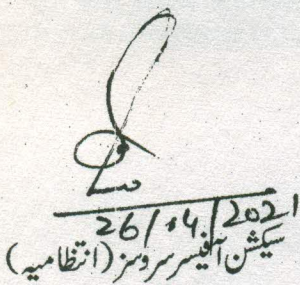 26/04/2021
سیکشن آفیسر سروسز (انتظامیہ)